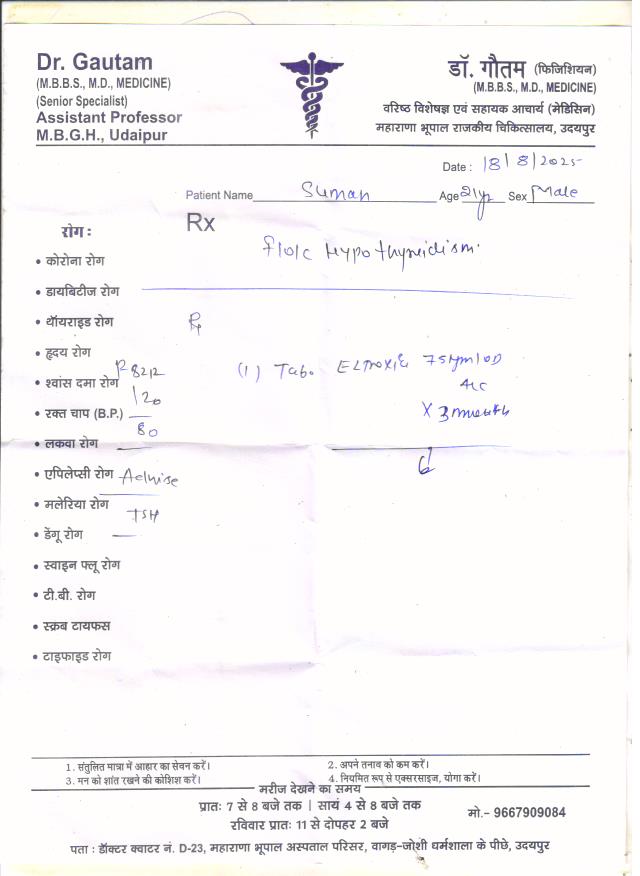 Dr. Gautam
(M.B.B.S., M.D., MEDICINE)
(Senior Specialist)
Assistant Professor
M.B.G.H., Udaipur
डॉ. गौतम (फिजिशियन)
(M.B.B.S., M.D., MEDICINE)
वरिष्ठ विशेषज्ञ एवं सहायक आचार्य (मेडिसिन)
महाराणा भूपाल राजकीय चिकित्सालय, उदयपुर
Date : 18/8/2025
Patient Name Suman Age 21yr Sex Male
Rx
रोग :
F/O/C Hypothyroidism.
• कोरोना रोग
• डायबिटीज रोग
• थॉयराइड रोग
• हृदय रोग
(1) Tab. 75 OD
• श्वांस दमा रोग
120
• रक्त चाप (B.P.)
80
X 3 month
• लकवा रोग
• एपिलेप्सी रोग Advise
• मलेरिया रोग
TSH
• डेंगू रोग
• स्वाइन फ्लू रोग
• टी.बी. रोग
• स्क्रब टायफस
• टाइफाइड रोग
1. संतुलित मात्रा में आहार का सेवन करें।
2. अपने तनाव को कम करें।
3. मन को शांत रखने की कोशिश करें।
4. नियमित रूप से एक्सरसाइज, योगा करें।
मरीज देखने का समय
प्रातः 7 से 8 बजे तक | सायं 4 से 8 बजे तक
रविवार प्रातः 11 से दोपहर 2 बजे
मो.- 9667909084
पता : डॉक्टर क्वाटर नं. D-23, महाराणा भूपाल अस्पताल परिसर, वागड़-जोशी धर्मशाला के पीछे, उदयपुर